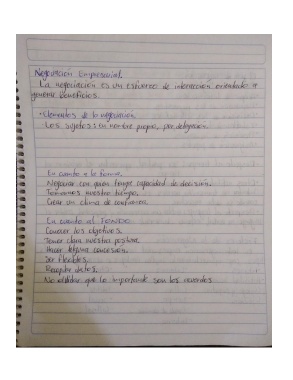 Negociación Empresarial
La negociación es un esfuerzo de interacción orientado a
generar beneficios.
• Elementos de la negociación
Los sujetos: en nombre propio, por delegación.
En cuanto a la forma
Negociar con quien tenga capacidad de decisión.
Tomarnos nuestro tiempo.
Crear un clima de confianza.
En cuanto al FONDO
Conocer los objetivos.
Tener clara nuestra postura.
Hacer alguna concesión.
Ser flexibles.
Recopilar datos.
No olvidar que lo importante son los acuerdos